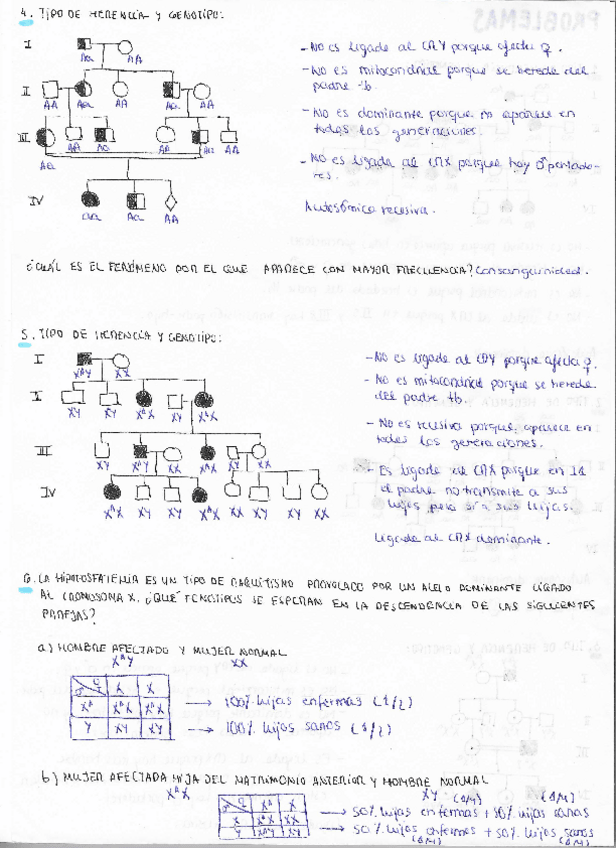 4. TIPO DE HERENCIA Y GENOTIPO:
I
Aa AA
- No es ligada al CRY porque afecta ♀.
- No es mitocondrial porque se hereda del
padre tb.
II
AA Aa AA Aa AA
- No es dominante porque no aparece en
todas las generaciones.
III
Aa AA Aa AA Aa AA
- No es ligada al CRX porque hay ♂ portado-
res.
IV
aa Aa AA
Autosómica recesiva.
¿CUÁL ES EL FENÓMENO POR EL QUE APARECE CON MAYOR FRECUENCIA? Consanguinidad.
5. TIPO DE HERENCIA Y GENOTIPO:
I
XᴬY XX
- No es ligada al CRY porque afecta ♀.
- No es mitocondrial porque se hereda
del padre tb.
II
XY XY XᴬX XY XᴬX
- No es recesiva porque aparece en
todas las generaciones.
III
XY XᴬY XX XᴬX XY XX
- Es ligada al CRX porque en
el padre no transmite a sus
hijos pero sí a sus hijas.
IV
XᴬX XY XY XᴬX XX XY XY XX
Ligada al CRX dominante.
6. LA HIPOFOSFATEMIA ES UN TIPO DE RAQUITISMO PROVOCADO POR UN ALELO DOMINANTE LIGADO
AL CROMOSOMA X. ¿QUÉ FENOTIPOS SE ESPERAN EN LA DESCENDENCIA DE LAS SIGUIENTES
PAREJAS?
a) HOMBRE AFECTADO Y MUJER NORMAL
XᴬY XX
♂ ♀ X X
Xᴬ XᴬX XᴬX → 100% hijas enfermas (1/2)
Y XY XY → 100% hijos sanos (1/2)
b) MUJER AFECTADA HIJA DEL MATRIMONIO ANTERIOR Y HOMBRE NORMAL
XᴬX XY
♂ ♀ Xᴬ X (1/4) (1/4)
X XᴬX XX → 50% hijas enfermas + 50% hijas sanas
Y XᴬY XY → 50% hijos enfermos + 50% hijos sanos
(1/4) (1/4)